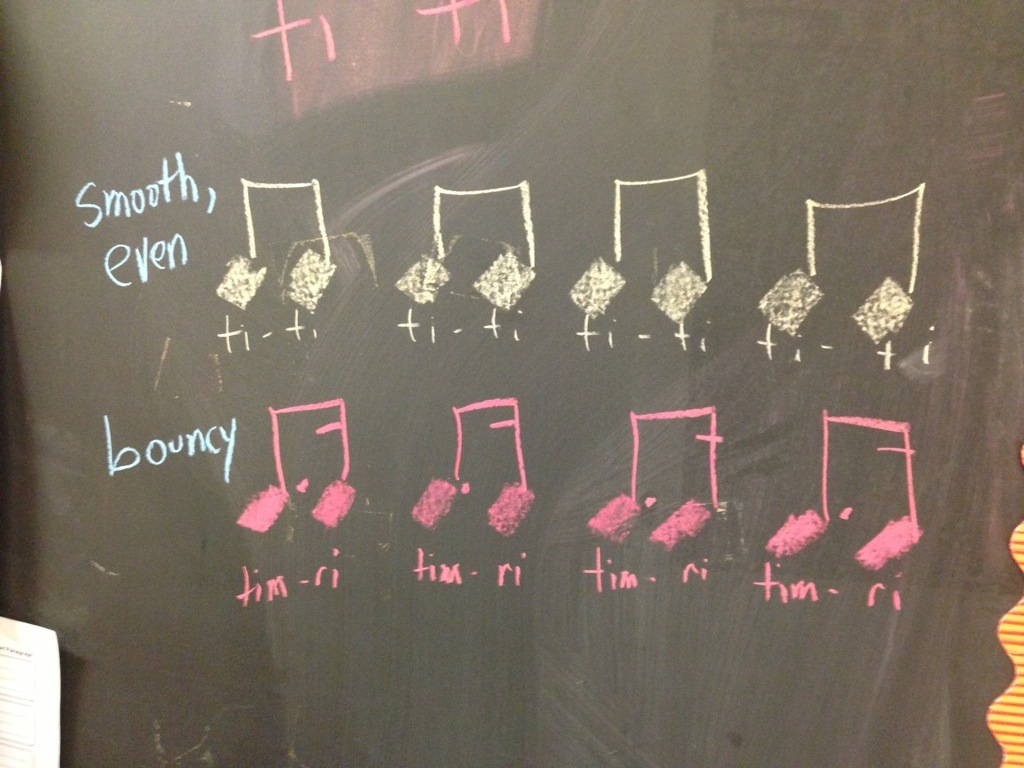 ti ti
smooth,
even
ti-ti ti-ti ti-ti ti-ti
bouncy
tim-ri tim-ri tim-ri tim-ri